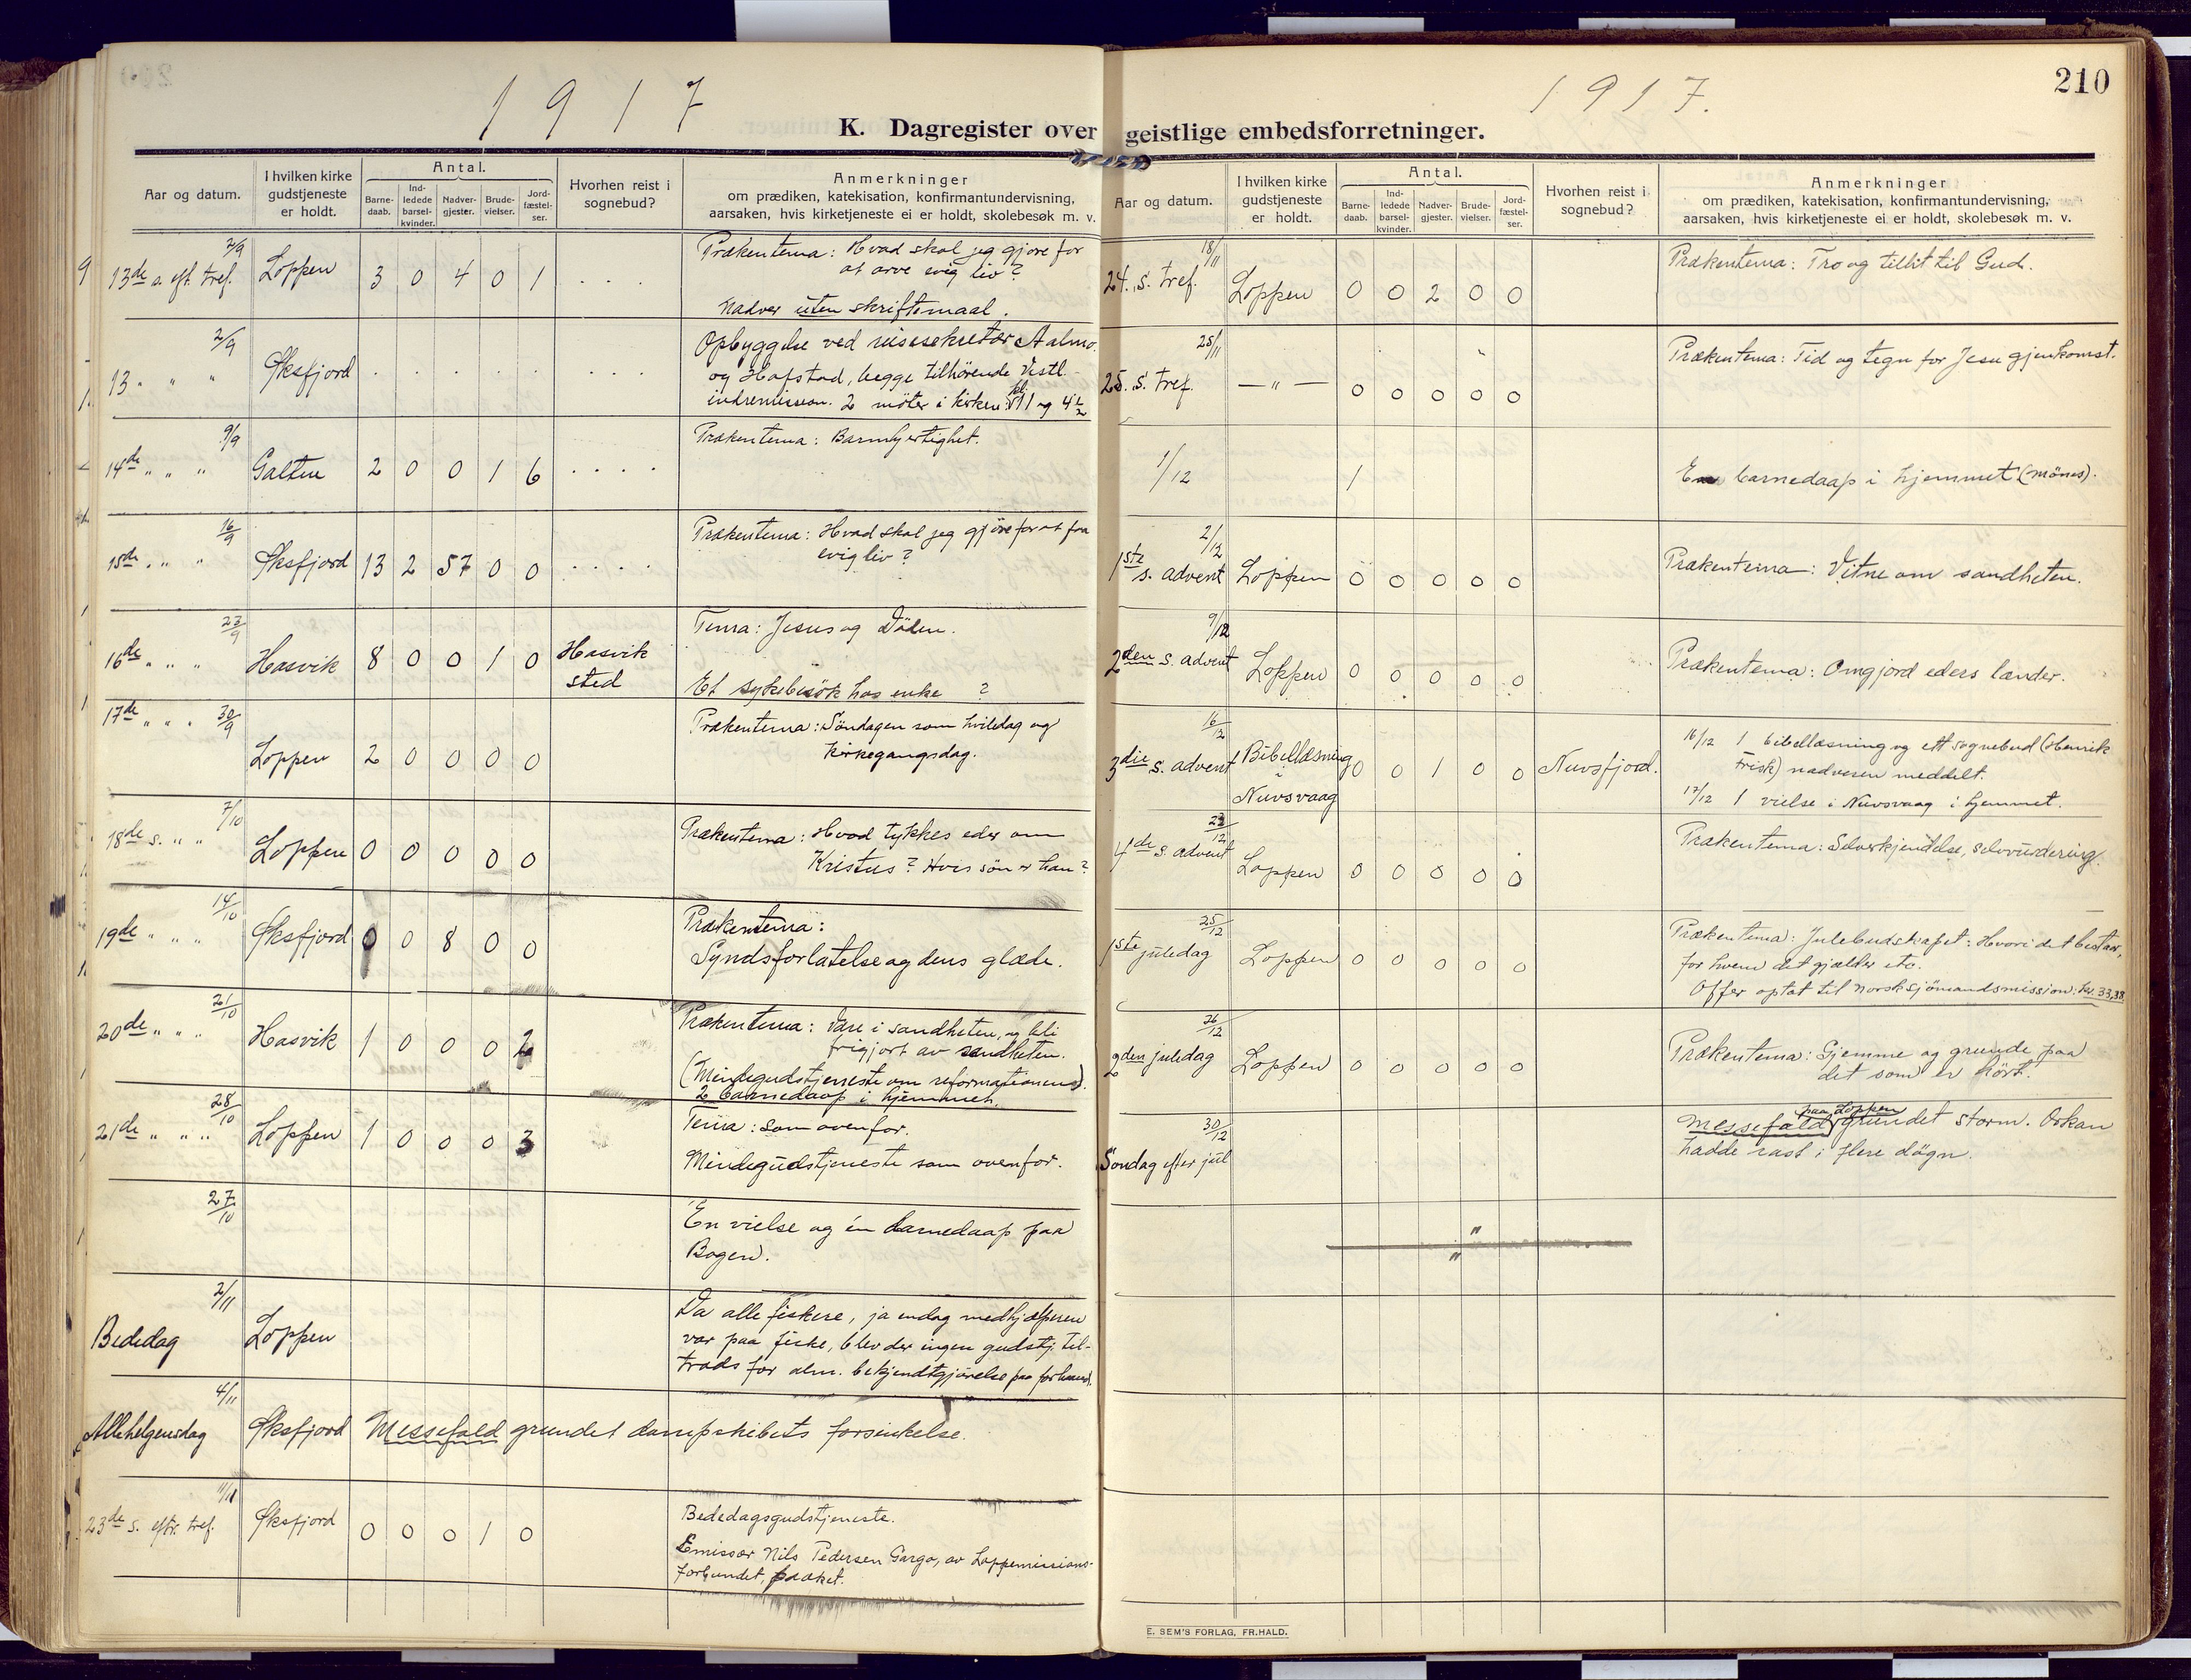 210
1917
1917.
K. Dagregister over geistlige embedsforretninger.
Aar og datum.
I hvilken kirke gudstjeneste er holdt.
Antal.
Barne-daab.
Ind-ledede barsel-kvinder.
Nadver-gjester.
Brude-vielser.
Jord-fæstel-ser.
Hvorhen reist i sognebud?
Anmerkninger
om prædiken, katekisation, konfirmantundervisning,
aarsaken, hvis kirketjeneste ei er holdt, skolebesøk m. v.
2/9
13de s. eft. tref. Loppen 3 0 4 0 1 . . .
Prækentema: Hvad skal jeg gjøre for
at arve evig liv?
Nadver uten skriftemaal.
2/9
13 " " " Øksfjord . . . . . . . .
Opbyggelse ved reisesekretær Aalmo.
og Hofstad, begge tilhørende Vestl.
indremission. 2 møter i kirken: kl. 11 og 4 1/2
9/9
14de " " " Galten 2 0 0 1 6 . . . .
Prækentema: Barmhjertighet.
16/9
15de " " " Øksfjord 13 2 57 0 0 . . . .
Prækentema: Hvad skal jeg gjöre for at faa
evig liv?
23/9
16de " " " Hasvik 8 0 0 1 0 Hasvik
sted
Tema: Jesus og Döden.
Et sykebesök hos enke ?
17de " " " 30/9
Loppen 2 0 0 0 0
Prækentema: Söndagen som hviledag og
kirkegangsdag.
7/10
18de s. " " Loppen 0 0 0 0 0
Prækentema: Hvad tykkes eder om
Kristus? Hvis sön er han?
14/10
19de " " " Øksfjord 0 0 8 0 0
Prækentema:
Syndsforlatelse og dens glæde.
21/10
20de " " " Hasvik 1 0 0 0 2
Prækentema: Være i sandheten, og bli
frigjort av sandheten.
(Mindegudstjeneste om reformationens).
2 barnedaap i hjemmet.
28/10
21de " " " Loppen 1 0 0 0 3
Tema: Som ovenfor.
Mindegudstjeneste som ovenfor.
27/10
En vielse og én barnedaap paa
Bogen.
2/11
Bededag Loppen
Da alle fiskere, ja endog medhjælperen
var paa fiske, blev der ingen gudstj. til-
trods for alm. bekjendtgjörelse paa forhaand.
4/11
Allehelgensdag Øksfjord Messefald grundet dampskibets forsinkelse.
11/11
23de s. eftr. tref. Øksfjord 0 0 0 1 0
Bededagsgudstjeneste.
Emissær Nils Pedersen Garga, av Loppemissions-
forbundet, præket.
Aar og datum.
I hvilken kirke gudstjeneste er holdt.
Antal.
Barne-daab.
Ind-ledede barsel-kvinder.
Nadver-gjester.
Brude-vielser.
Jord-fæstel-ser.
Hvorhen reist i sognebud?
Anmerkninger
om prædiken, katekisation, konfirmantundervisning,
aarsaken, hvis kirketjeneste ei er holdt, skolebesøk m. v.
18/11
24. s. tref. Loppen 0 0 2 0 0
Prækentema: Tro og tillit til Gud.
25/11
25. s. tref. — " — 0 0 0 0 0
Prækentema: Tid og tegn for Jesu gjenkomst.
1/12 1
En barnedaap i hjemmet (Mönes).
2/12
1ste s. advent Loppen 0 0 0 0 0
Prækentema: Vitne om sandheten.
9/12
2den s. advent Loppen 0 0 0 0 0
Prækentema: Omgjord eders lænder.
16/12
3die s. advent Bibellæsning i Nuvsvaag 0 0 1 0 0 Nuvsfjord.
16/12 1 bibellæsning og ett sognebud (Henrik
Frisk) nadveren meddelt.
17/12 1 vielse i Nuvsvaag i hjemmet.
23/12
4de s. advent Loppen 0 0 0 0 0
Prækentema: Selverkjendelse, selvvurdering.
25/12
1ste juledag Loppen 0 0 0 0 0
Prækentema: Julebudskapet: Hvori det bestaar,
for hvem det gjælder etc.
Offer optat til norsk sjömandsmission: kr. 33,38
26/12
2den juledag Loppen 0 0 0 0 0
Prækentema: Gjemme og grunde paa
det som er hört.
30/12
Söndag efter jul
Messefald paa Loppen grundet storm. Orkan
hadde rast i flere dögn.
"
"
E. SEM'S FORLAG, FR.HALD.